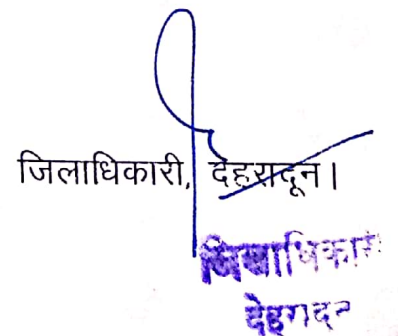 जिलाधिकारी, देहरादून।
जिलाधिकारी
देहरादून